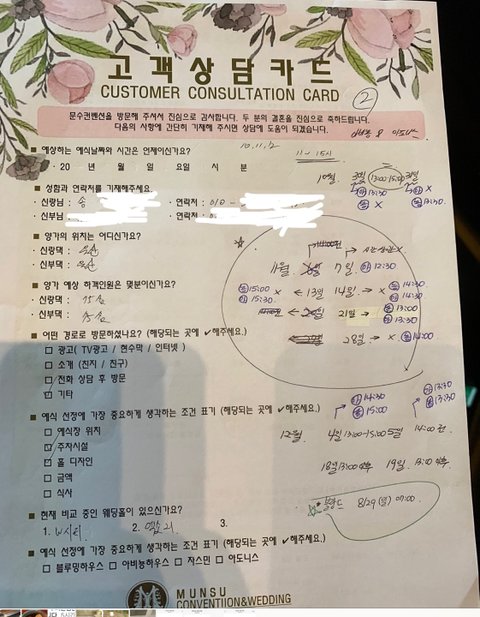 고객상담카드
CUSTOMER CONSULTATION CARD
②
문수컨벤션을 방문해 주셔서 진심으로 감사합니다. 두 분의 결혼을 진심으로 축하드립니다.
다음의 사항에 간단히 기재해 주시면 상담에 도움이 되겠습니다.
■ 예상하는 예식날짜와 시간은 언제이신가요?
10, 11, 12
11~15시
· 20 년 월 일 요일 시 분
13:00~15:00
■ 성함과 연락처를 기재해주세요.
13:30
· 신랑님 : 송 · 연락처 : 010 -
· 신부님 · 연락처 :
13:30
■ 양가의 위치는 어디신가요?
· 신랑댁 : 울산
· 신부댁 : 울산
11월 7일 12:30
■ 양가 예상 하객인원은 몇분이신가요?
· 신랑댁 :
· 신부댁 :
15:00 x ← 13일 14일 → x 14:30
15:30 14:30
21일 → 13:00
13:30
28일 → x 14:00
■ 어떤 경로로 방문하셨나요? (해당되는 곳에 ✔해주세요.)
□ 광고( TV광고 / 현수막 / 인터넷 )
□ 소개 (친지 / 친구)
□ 전화 상담 후 방문
☑ 기타
■ 예식 선정에 가장 중요하게 생각하는 조건 표기 (해당되는 곳에 ✔해주세요.)
14:30
15:00
13:30
13:30
□ 예식장 위치
☑ 주차시설
☑ 홀 디자인
□ 금액
□ 식사
12월 4일 13:00~15:00 5일 14:00 전
18일 13:00 이후 19일
■ 현재 비교 중인 웨딩홀이 있으신가요?
1. W시티 2. 3.
8/29(일) 07:00
■ 예식 선정에 가장 중요하게 생각하는 조건 표기 (해당되는 곳에 ✔해주세요.)
□ 블루밍하우스 □ 아비뉴하우스 □ 자스민 □ 아도니스
MUNSU
CONVENTIION&WEDDING